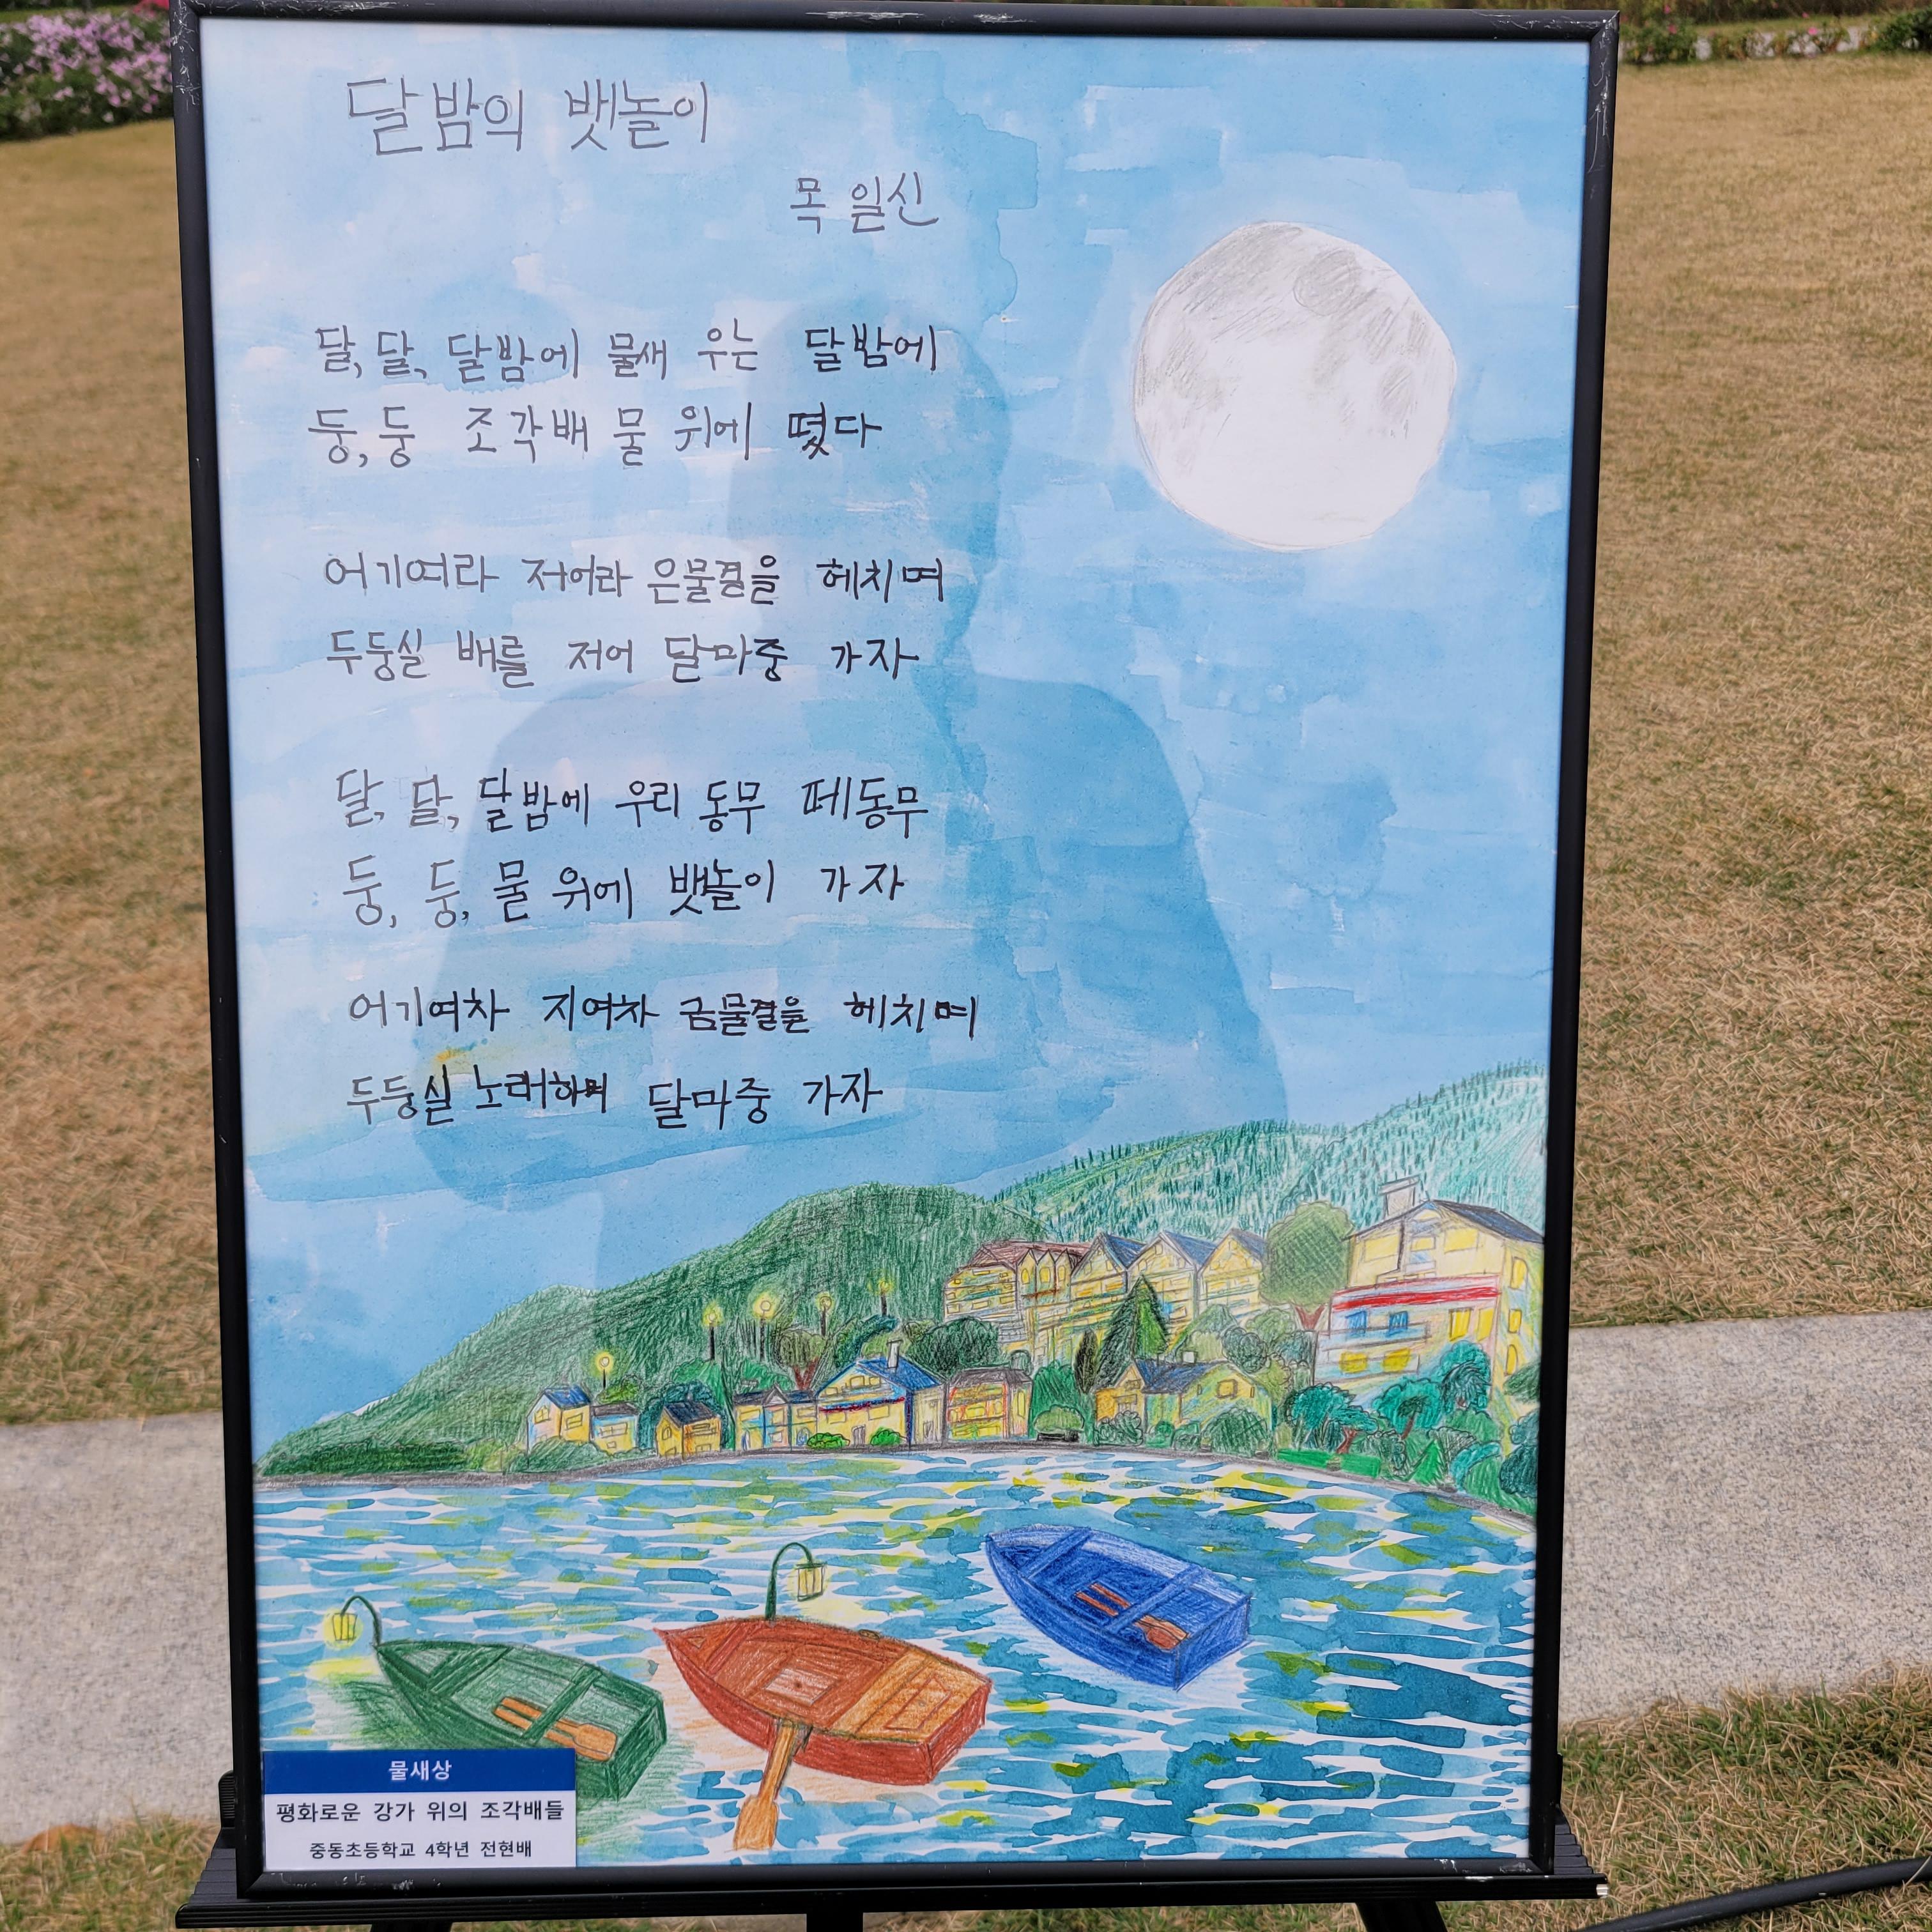 달밤의 뱃놀이
목일신
달, 달, 달밤에 물새 우는 달밤에
둥, 둥 조각배 물 위에 떴다
어기여라 저어라 은물결을 헤치며
두둥실 배를 저어 달마중 가자
달, 달, 달밤에 우리 동무 떼동무
둥, 둥, 물 위에 뱃놀이 가자
어기여차 지여차 금물결을 헤치며
두둥실 노래하며 달마중 가자
물새상
평화로운 강가 위의 조각배들
중동초등학교 4학년 전현배